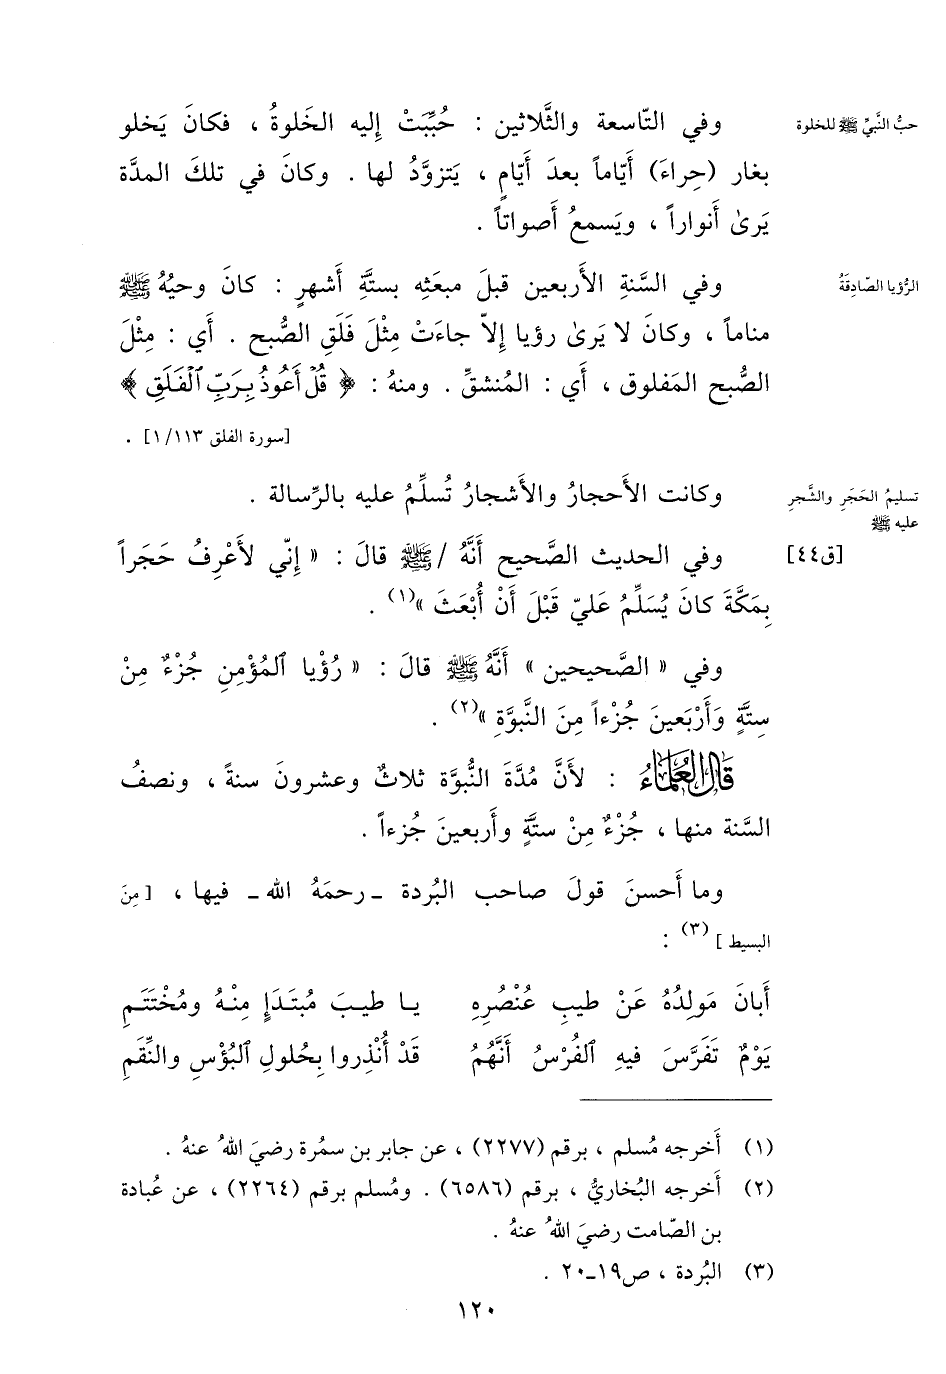 حبُّ النَّبيِّ ﷺ للخلوة
وفي التّاسعة والثَّلاثين : حُبِّبَتْ إِليه الخَلوةُ ، فكانَ يَخلو
بغار (حِراءَ) أَيّاماً بعدَ أَيّامٍ ، يَتزوَّدُ لها . وكانَ في تلكَ المدَّة
يَرىٰ أَنواراً ، ويَسمعُ أَصواتاً .
الرُّؤيا الصّادِقَةُ
وفي السَّنةِ الأَربعين قبلَ مبعَثِه بستَّةِ أَشهرٍ : كانَ وحيُهُ ﷺ
مناماً ، وكانَ لا يَرىٰ رؤيا إِلاّ جاءَتْ مِثْلَ فَلَقِ الصُّبح . أَي : مِثْلَ
الصُّبح المَفلوق ، أَي : المُنشقِّ . ومنهُ : ﴿ قُلْ أَعُوذُ بِرَبِّ ٱلْفَلَقِ ﴾
[سورة الفلق ١١٣/ ١] .
تسليمُ الحَجَرِ والشَّجرِ
عليه ﷺ
وكانت الأَحجارُ والأَشجارُ تُسلِّمُ عليه بالرِّسالة .
[ق٤٤]
وفي الحديث الصَّحيح أَنَّهُ /ﷺ قالَ : « إِنّي لأَعْرِفُ حَجَراً
بِمَكَّةَ كانَ يُسَلِّمُ عَليّ قَبْلَ أَنْ أُبْعَثَ »(١) .
وفي « الصَّحيحين » أَنَّهُ ﷺ قالَ : « رُؤْيا ٱلمُؤْمِنِ جُزْءٌ مِنْ
سِتَّةٍ وَأَرْبَعينَ جُزْءاً مِنَ النَّبوَّةِ »(٢) .
قَالَ العُلَمَاءُ : لأَنَّ مُدَّةَ النُّبوَّة ثلاثٌ وعشرونَ سنةً ، ونصفُ
السَّنة منها ، جُزْءٌ مِنْ ستَّةٍ وأَربعينَ جُزءاً .
وما أَحسنَ قولَ صاحب البُردة ـ رحمَهُ الله ـ فيها ، [ مِنَ
البسيط ](٣) :
أَبانَ مَولِدُهُ عَنْ طيبِ عُنْصُرِهِ يـا طيـبَ مُبتَـدَإٍ مِنْـهُ ومُخْتَتَـمِ
يَوْمٌ تَفَرَّسَ فيهِ ٱلفُرْسُ أَنَّهُمُ قَدْ أُنْذِروا بِحُلولِ ٱلبُؤْسِ والنِّقَمِ
(١) أَخرجه مُسلم ، برقم (٢٢٧٧) ، عن جابر بن سمُرة رضيَ اللهُ عنهُ .
(٢) أَخرجه البُخاريُّ ، برقم (٦٥٨٦) . ومُسلم برقم (٢٢٦٤) ، عن عُبادة
بن الصّامت رضيَ اللهُ عنهُ .
(٣) البُردة ، ص١٩ـ٢٠ .
١٢٠